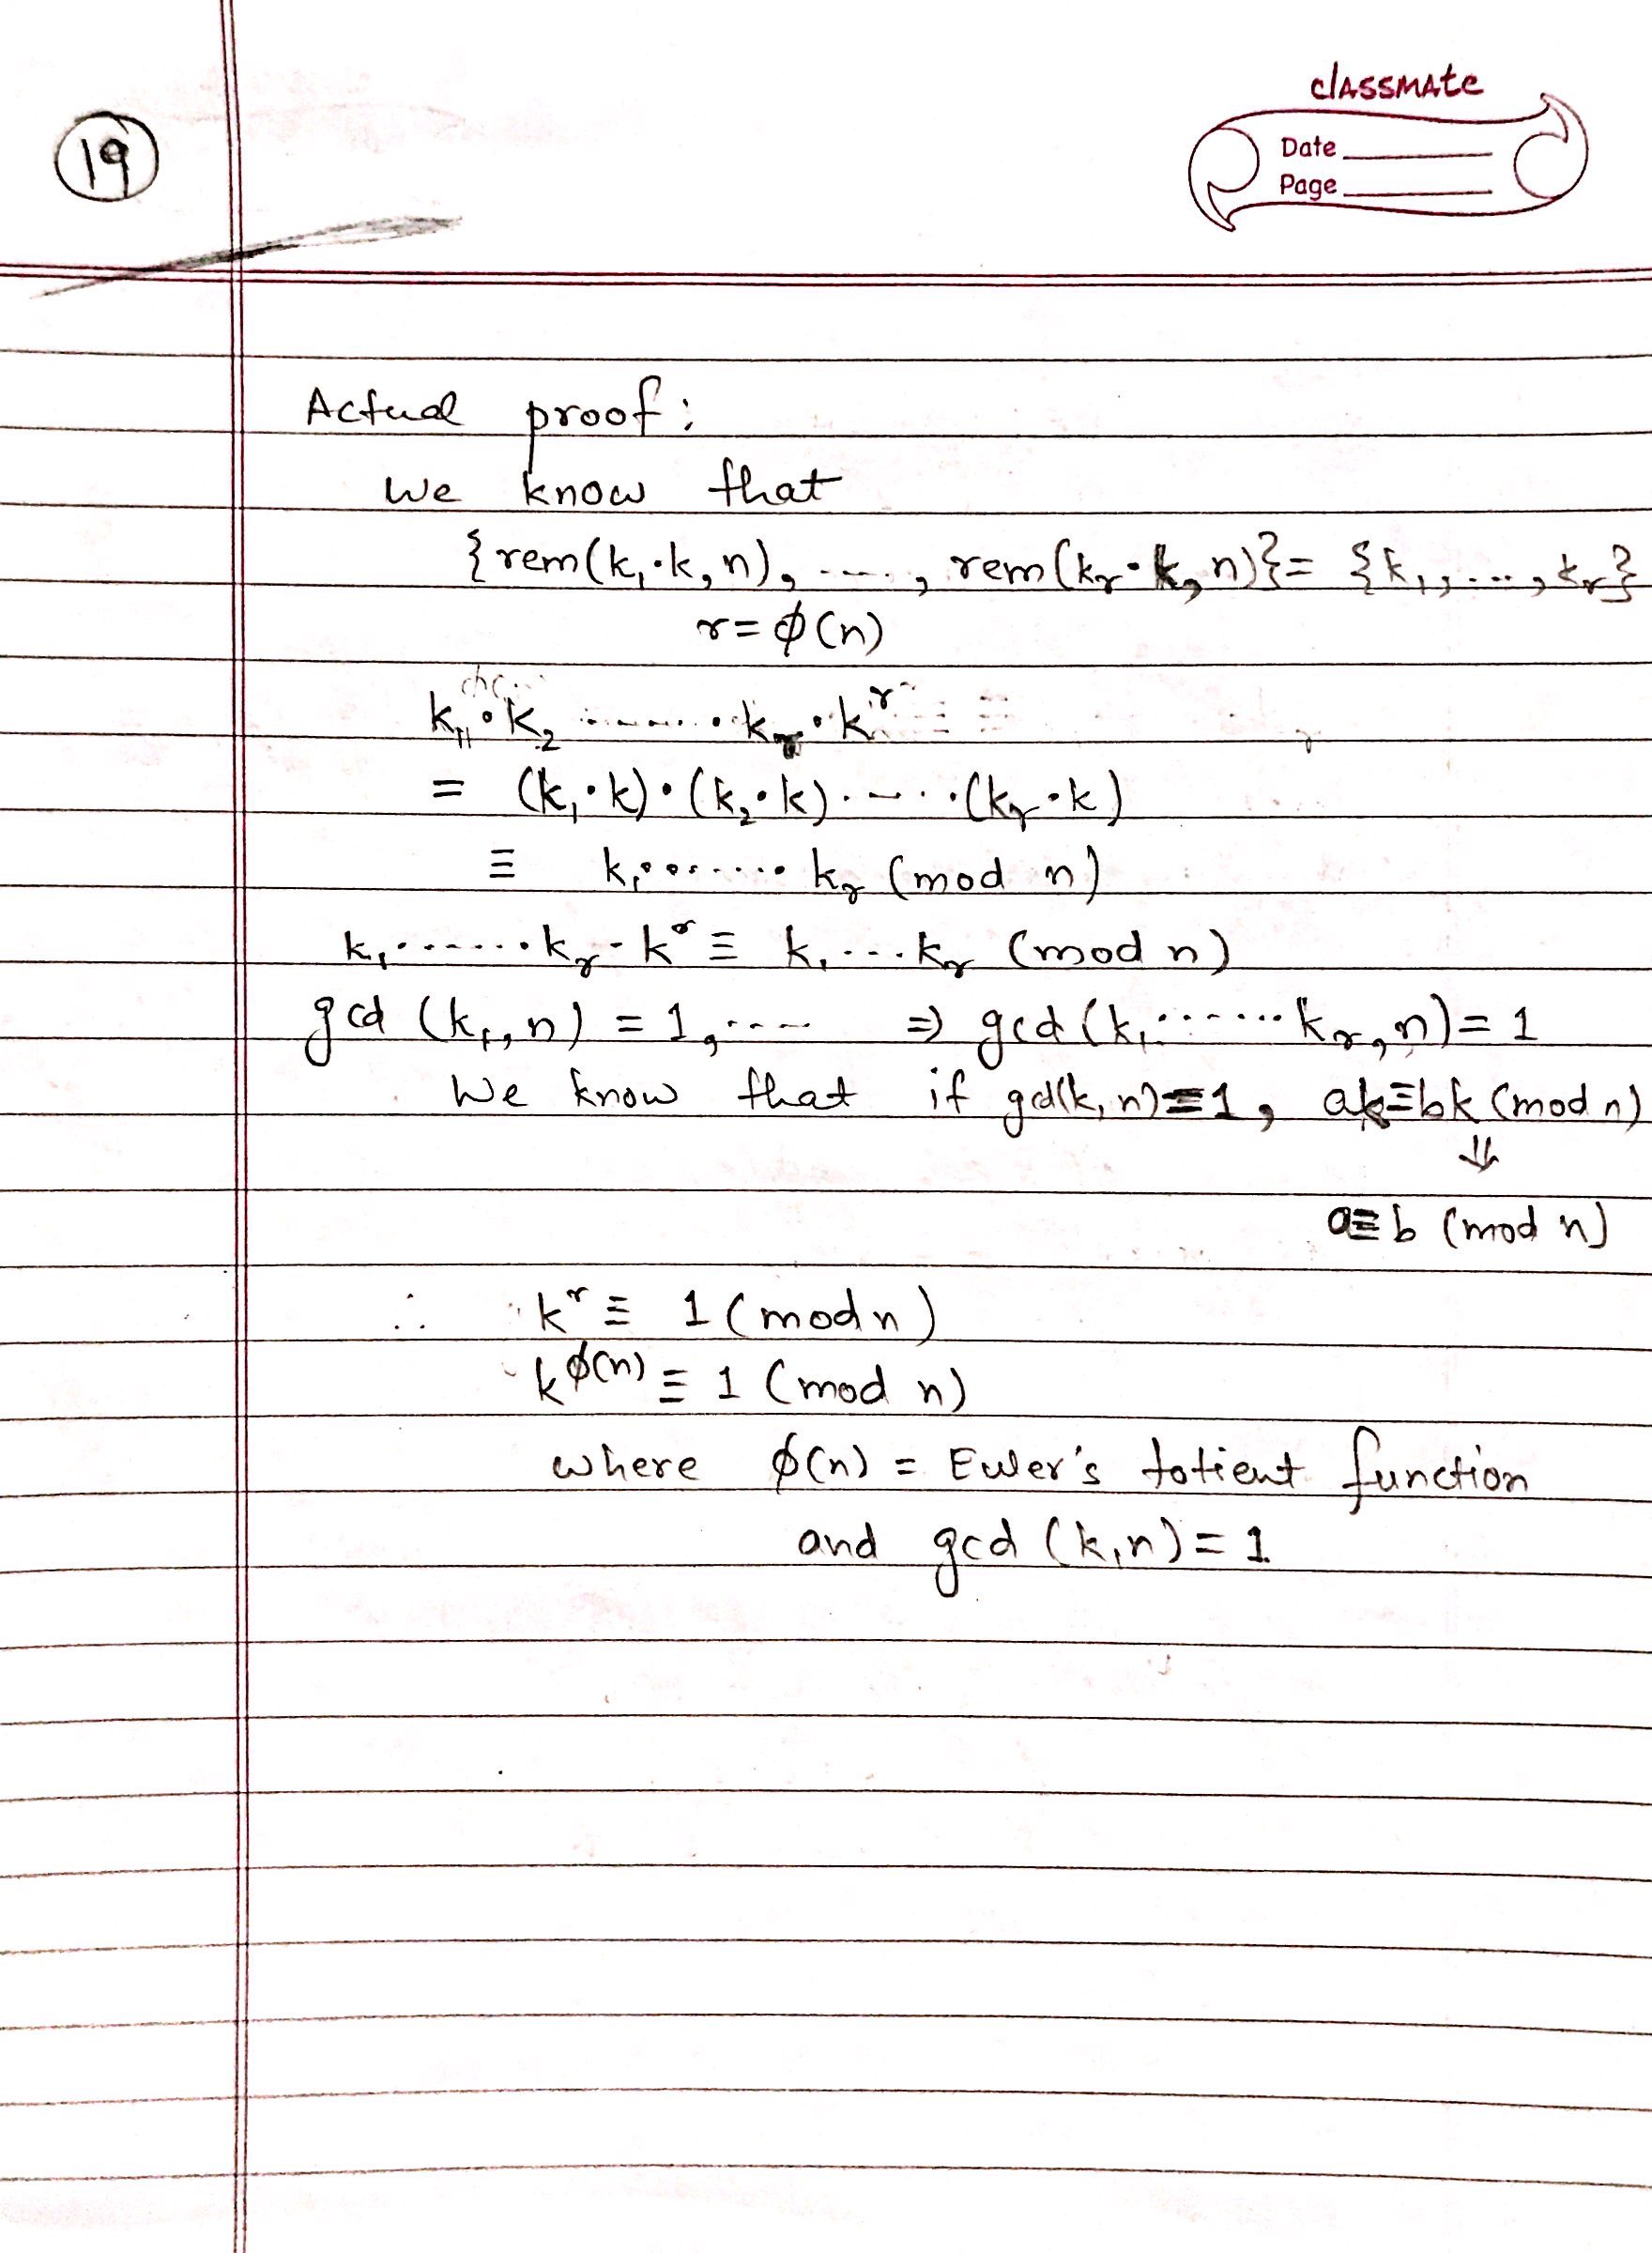 classmate
Date
Page
19
Actual proof:
We know that
{rem(k₁·k, n), ----, rem(kᵣ·k, n)} = {k₁, ..., kᵣ}
r = ϕ(n)
k₁·k₂ ........·kᵣ·kʳ
= (k₁·k)·(k₂·k).-..·(kᵣ·k)
≡ k₁·.......·kᵣ (mod n)
k₁·......·kᵣ·kʳ ≡ k₁....kᵣ (mod n)
gcd (k₁, n) = 1, ---- ⇒ gcd(k₁·......·kᵣ, n) = 1
We know that if gcd(k, n)=1, ak≡bk (mod n)
⇓
a≡b (mod n)
∴ kʳ ≡ 1 (mod n)
k^ϕ(n) ≡ 1 (mod n)
where ϕ(n) = Euler's totient function
and gcd (k, n) = 1